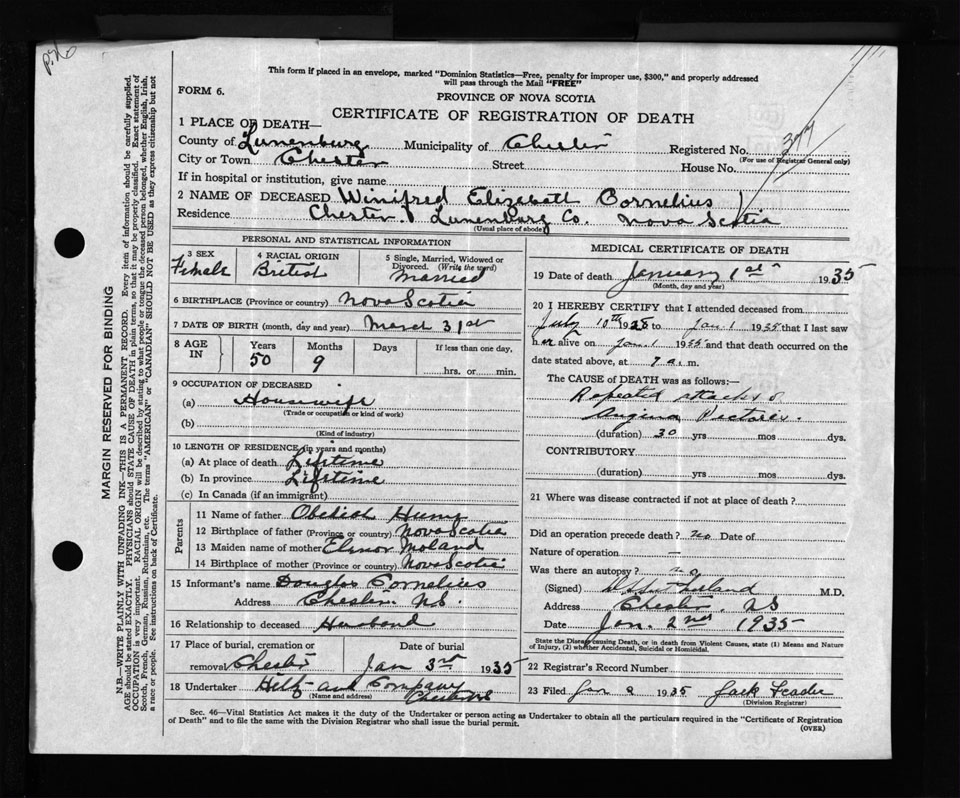 P.76
This form if placed in an envelope, marked "Dominion Statistics—Free, penalty for improper use, $300," and properly addressed
will pass through the Mail "FREE"
FORM 6.
PROVINCE OF NOVA SCOTIA
CERTIFICATE OF REGISTRATION OF DEATH
1 PLACE OF DEATH—
County of Lunenburg Municipality of Chester Registered No. 377
(For use of Registrar General only)
City or Town Chester Street House No.
If in hospital or institution, give name
2 NAME OF DECEASED Winifred Elizabeth Cornelius
Residence Chester. Lunenburg Co. Nova Scotia
(Usual place of abode)
PERSONAL AND STATISTICAL INFORMATION
3 SEX Female
4 RACIAL ORIGIN British
5 Single, Married, Widowed or Divorced. (Write the word) Married
6 BIRTHPLACE (Province or country) Nova Scotia
7 DATE OF BIRTH (month, day and year) March 31st
8 AGE IN Years 50 Months 9 Days If less than one day, hrs. or min.
9 OCCUPATION OF DECEASED
(a) Housewife
(Trade or occupation or kind of work)
(b)
(Kind of industry)
10 LENGTH OF RESIDENCE (in years and months)
(a) At place of death Lifetime
(b) In province Lifetime
(c) In Canada (if an immigrant)
Parents
11 Name of father Obediah Hume
12 Birthplace of father (Province or country) Nova Scotia
13 Maiden name of mother Elenor Moland
14 Birthplace of mother (Province or country) Nova Scotia
15 Informant's name Douglas Cornelius
Address Chester. N.S.
16 Relationship to deceased Husband
17 Place of burial, cremation or removal Chester
Date of burial Jan 3rd 1935
18 Undertaker Hilf and Company
(Name and address) Chester NS
MEDICAL CERTIFICATE OF DEATH
19 Date of death January 1st 1935
(Month, day and year)
20 I HEREBY CERTIFY that I attended deceased from
July 10th 1925 to Jan. 1 1935 that I last saw
her alive on Jan. 1 1935 and that death occurred on the
date stated above, at 7 a. m.
The CAUSE OF DEATH was as follows:—
Repeated attacks of
Angina Pectoris.
(duration) 30 yrs mos dys.
CONTRIBUTORY
(duration) yrs mos dys.
21 Where was disease contracted if not at place of death?
Did an operation precede death? no Date of
Nature of operation —
Was there an autopsy? no
(Signed) M.D.
Address Chester. NS
Date Jan. 2nd 1935
State the Disease causing Death, or in death from Violent Causes, state (1) Means and Nature
of Injury, (2) whether Accidental, Suicidal or Homicidal.
22 Registrar's Record Number
23 Filed Jan 1935 Jack
(Division Registrar)
Sec. 46—Vital Statistics Act makes it the duty of the Undertaker or person acting as Undertaker to obtain all the particulars required in the "Certificate of Registration
of Death" and to file the same with the Division Registrar who shall issue the burial permit.
(OVER)
MARGIN RESERVED FOR BINDING
N.B.—WRITE PLAINLY WITH UNFADING INK—THIS IS A PERMANENT RECORD. Every item of information should be carefully supplied.
AGE should be stated EXACTLY. PHYSICIANS should STATE CAUSE OF DEATH in plain terms, so that it may be properly classified. Exact statement of
OCCUPATION is very important. RACIAL ORIGIN will be described by stating to what people or tongue the deceased person belonged, whether English, Irish,
Scotch, French, German, Russian, Ruthenian, etc. The terms "AMERICAN" or "CANADIAN" SHOULD NOT BE USED as they express citizenship but not
a race or people. See instructions on back of Certificate.